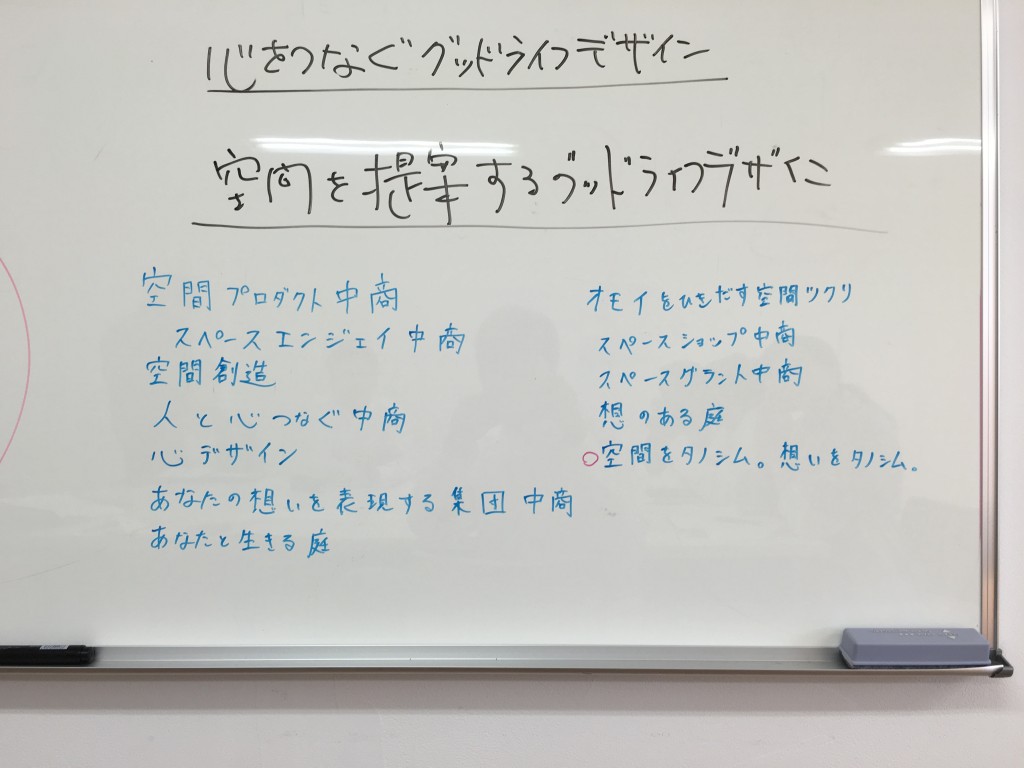 心をつなぐグッドライフデザイン
空間を提案するグッドライフデザイン
空間プロダクト中商
スペースエンジェイ中商
空間創造
人と心つなぐ中商
心デザイン
あなたの想いを表現する集団中商
あなたと生きる庭
オモイをひきだす空間ツクリ
スペースショップ中商
スペースグラント中商
想のある庭
○空間をタノシム。想いをタノシム。